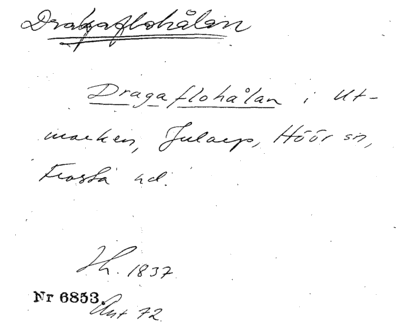 Dragaflohålan
Dragaflohålan i Ut-
marken, Jularp, Höör sn,
Frosta hd.
Jh. 1837
Nr 6853.
Ant 72